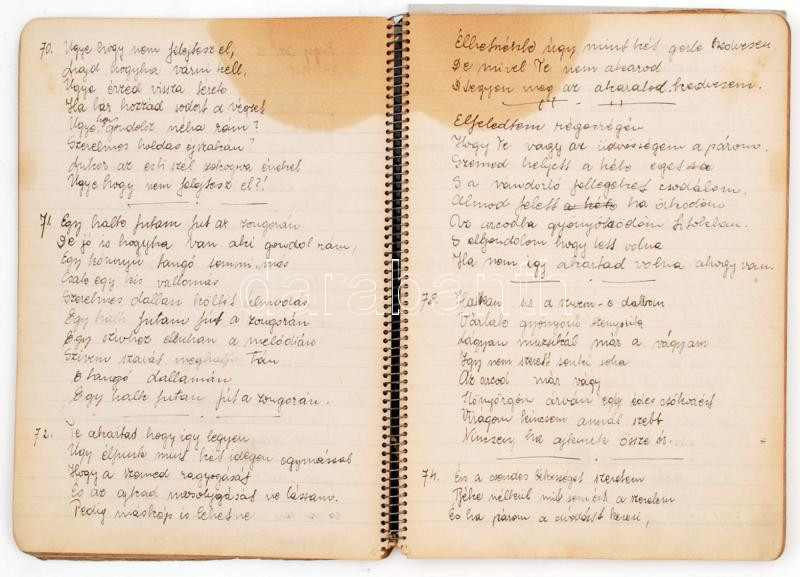 70. Ugye hogy nem felejtesz el,
Majd hogyha várni kell,
Ugye érzed vissza térek
Ha bár hozzád sodort a végzet
Ugye hogy gondolsz néha rám?
Szerelmes holdas éjszakán?
Mikor az esti szél zokogva énekel
Ugye hogy nem felejtesz el?!
71. Egy halk futam fut az zongorán
De jó is hogyha van aki gondol rám,
Egy könnyű tangó semmi más
Csak egy kis vallomás
Szerelmes dallam költői álmodás
Egy halk futam fut a zongorán
Egy szívhez elsuhan a melódián
Szívem szavát meghallja tán
E tangó dallamán
Egy halk futam fut a zongorán.
72. Te akartad hogy így legyen
Úgy éljünk mint két idegen egymással
Hogy a szemed ragyogását
És az ajkad mosolygását ne lássam.
Pedig másképp is lehetne
Élhetnénk úgy mint két gerle kedvesen
De mivel Te nem akarod
Legyen meg az akaratod kedvesem.
Elfeledtem régességén
Hogy Te vagy az üdvösségem a párom.
Szemed helyett a kék eget
S a vándorló fellegeket csodálom.
Álmod felett ha ölködöm
Az arcodba gyönyörködöm titokban.
S elgondolom hogy lett volna
Ha nem így akartad volna ahogy van.
73. Halkan
Lágyan muzsikál már a vágyam
Így nem szeret senki soha
Az arcod már vágy
Könyörgőn árván egy édes csókodért
Virágom kincsem annál szebb
Nincsen, ha ajkunk össze ér....
74. Én a csendes békességet szeretem
Béke nélkül mit sem ér a szerelem
És ha párom a csókját keresi,
darabanth